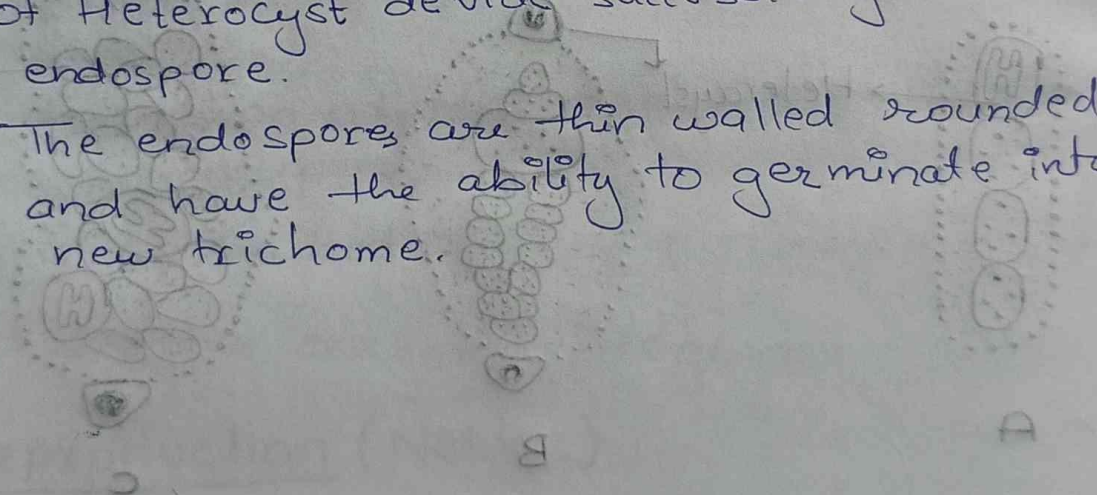 of Heterocyst
endospore.
The endospores are thin walled rounded
and have the ability to germinate into
new trichome.